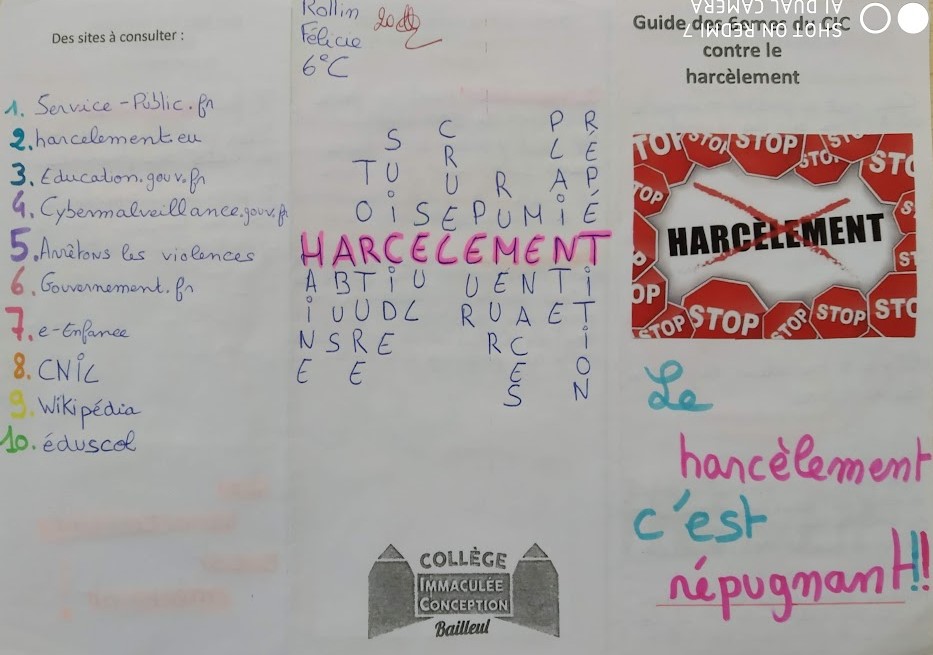 Des sites à consulter :
1. Service-Public.fr
2. harcelement.eu
3. Education.gouv.fr
4. Cybermalveillance.gouv.fr
5. Arrêtons les violences
6. Gouvernement.fr
7. e-Enfance
8. CNiL
9. Wikipédia
10. éduscol
Rollin
Félicie
6°C
20
C P R
S R L É
T U U R A P
O i S E P U M i É
HARCELEMENT
A B T i U U E N T i
i U U D L R U A E T
N S R E R C i
E E E O
S N
COLLÈGE
IMMACULÉE
CONCEPTION
Bailleul
Guide des 6emes du CIC
contre le
harcèlement
SHOT ON REDMI 7
AI DUAL CAMERA
STOP STOP STOP STOP STOP
STOP
HARCÈLEMENT
STOP STOP STOP STOP STOP
Le
harcèlement
c'est
répugnant!!!